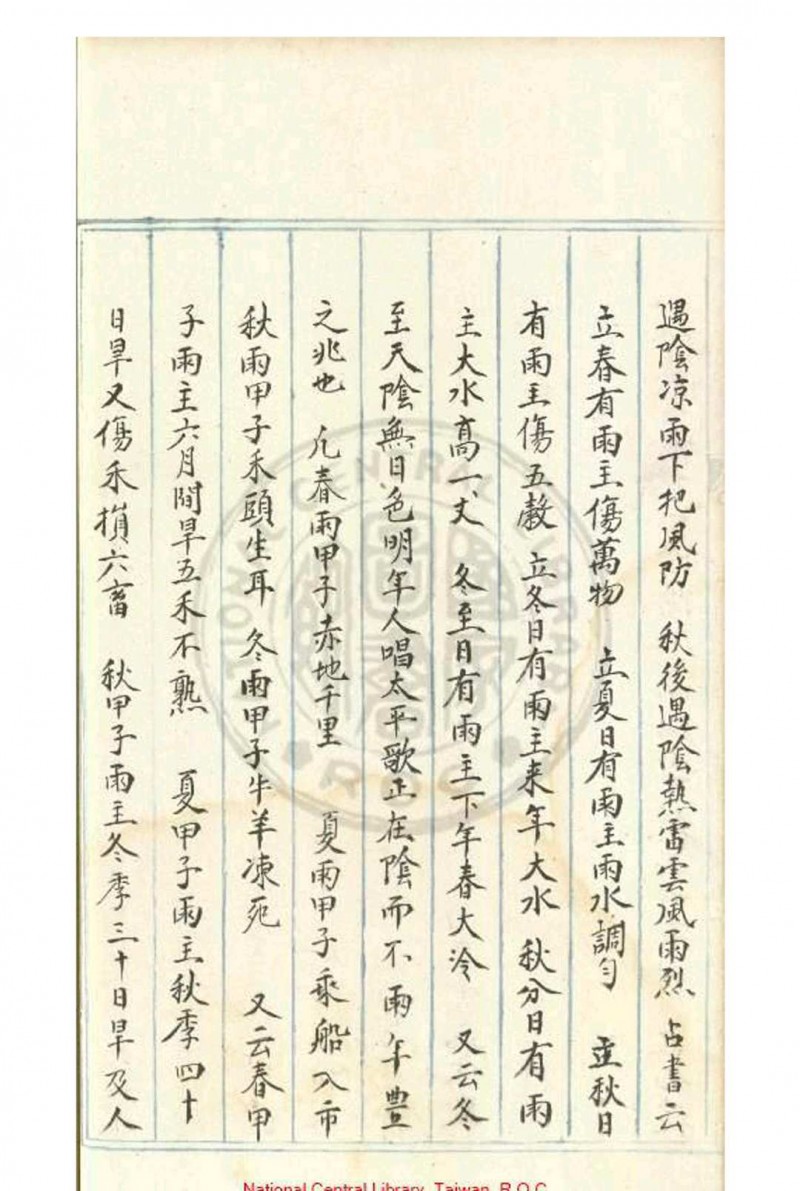 遇陰凉雨下把風防　秋後遇陰熱雷雲風雨烈　占書云
立春有雨主傷萬物　立夏日有雨主雨水調勻　立秋日
有雨主傷五穀　立冬日有雨主来年大水　秋分日有雨
主大水高一丈　冬至日有雨主下年春大冷　又云冬
至天陰無日色明年人唱太平歌正在陰而不雨年豊
之兆也　凡春雨甲子赤地千里　夏雨甲子乘船入市
秋雨甲子禾頭生耳　冬雨甲子牛羊凍死　又云春甲
子雨主六月間旱五禾不熟　夏甲子雨主秋季四十
日旱又傷禾損六畜　秋甲子雨主冬季三十日旱及人
NATIONAL CENTRAL LIBRARY
R.O.C.
National Central Library, Taiwan, R.O.C